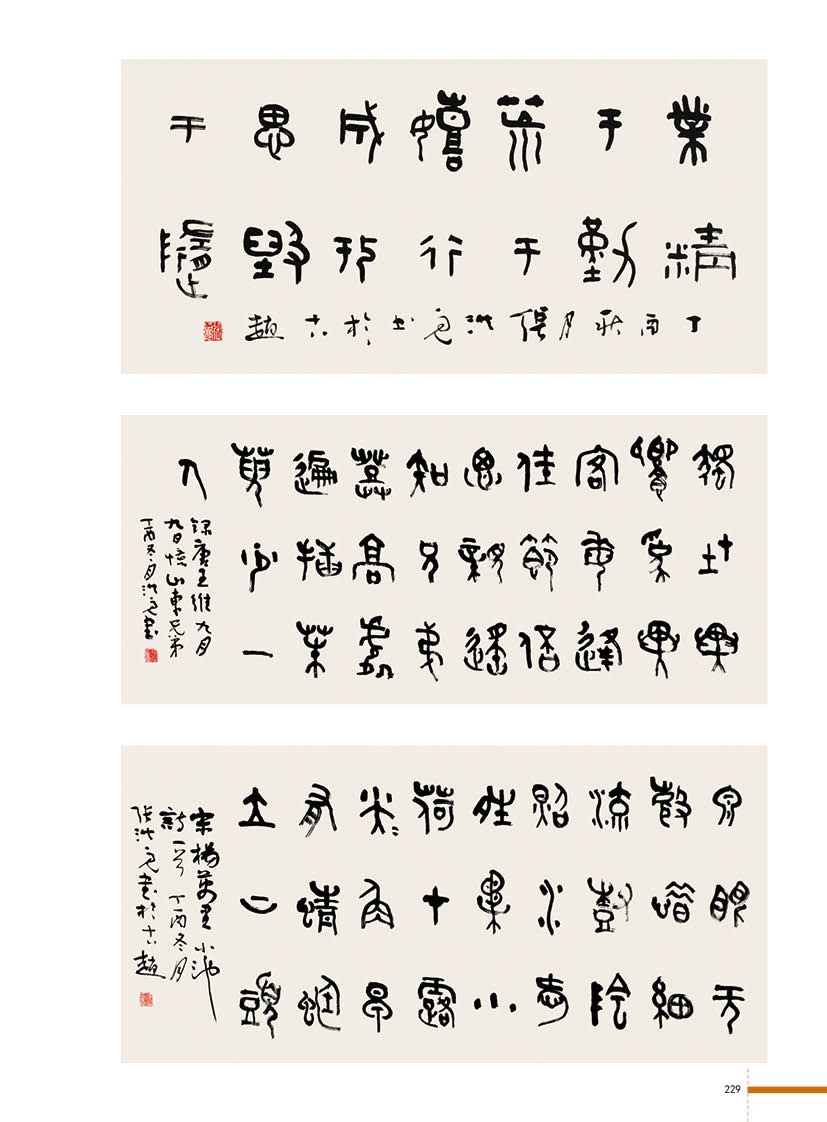 業精
于勤
荒于
嬉行
成于
思毀
于隨
丁酉秋月張洪書於古趙
獨在異
鄉為異
客每逢
佳節倍
思親遙
知兄弟
登高處
遍插茱
萸少一
人
錄唐王維九月
九日憶山東兄弟
丁酉冬月洪書
泉眼無
聲惜細
流樹陰
照水愛
晴柔小
荷才露
尖〻角早
有蜻蜓
立上頭
宋楊萬里小池
詩一首丁酉冬月
張洪書於古趙
229